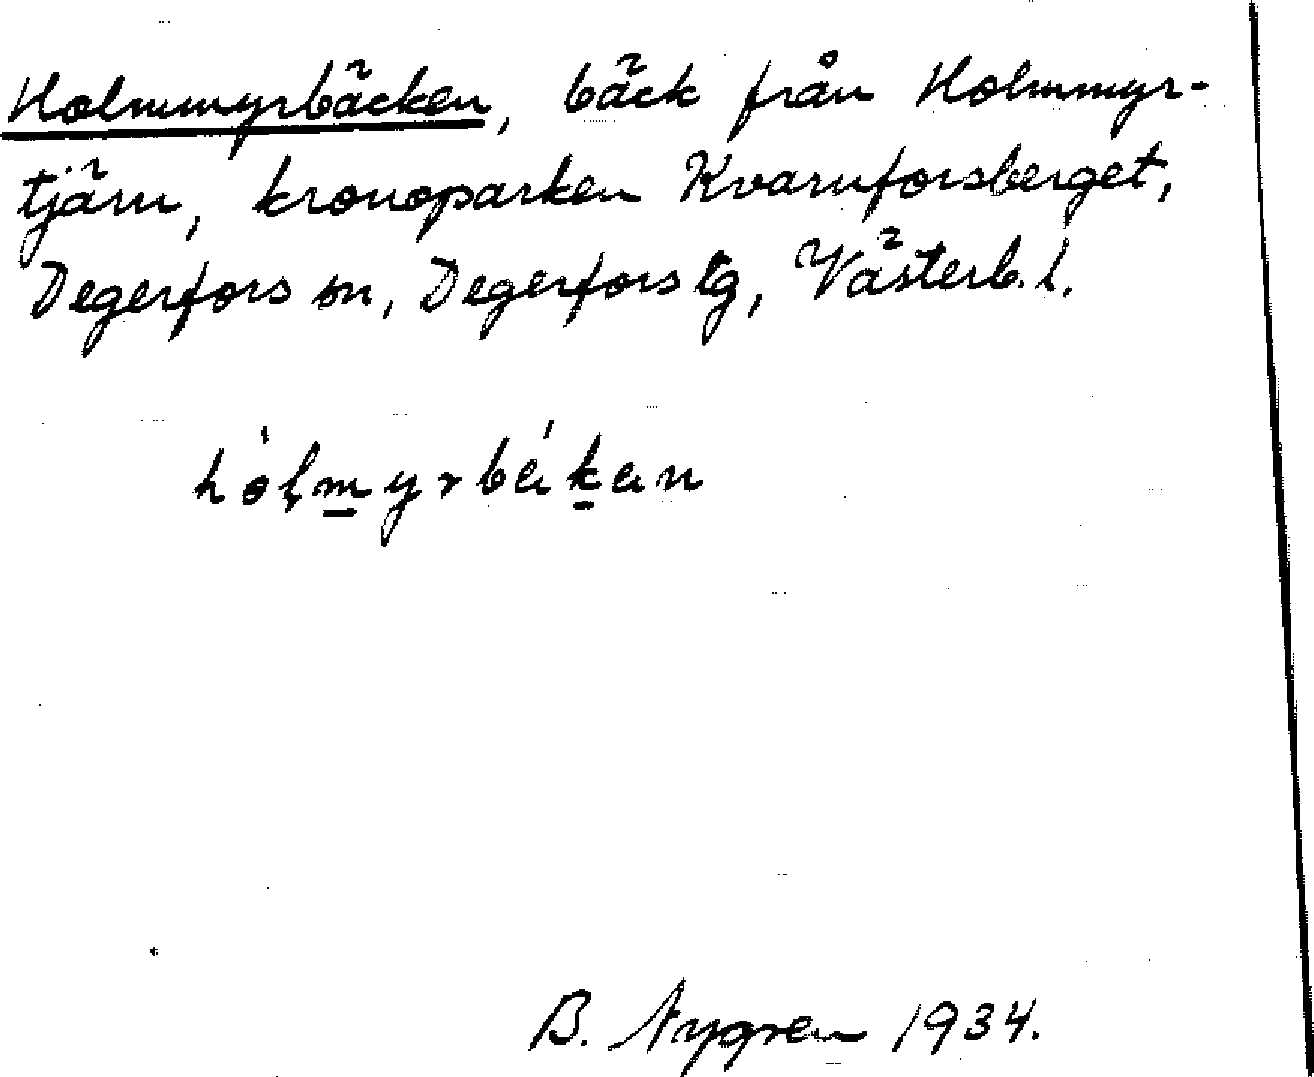 Holmmyrbäcken, bäck från Holmmyr-
tjärn, kronoparken Kvarnforsberget,
Degerfors sn, Degerfors tg, Västerb. l.
B. Nygren 1934.